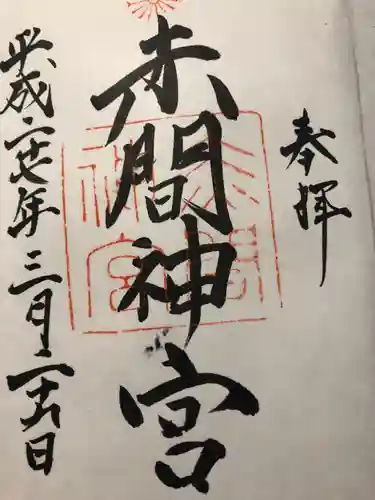 奉拝
赤間神宮
赤間神宮
平成二十七年三月二十八日